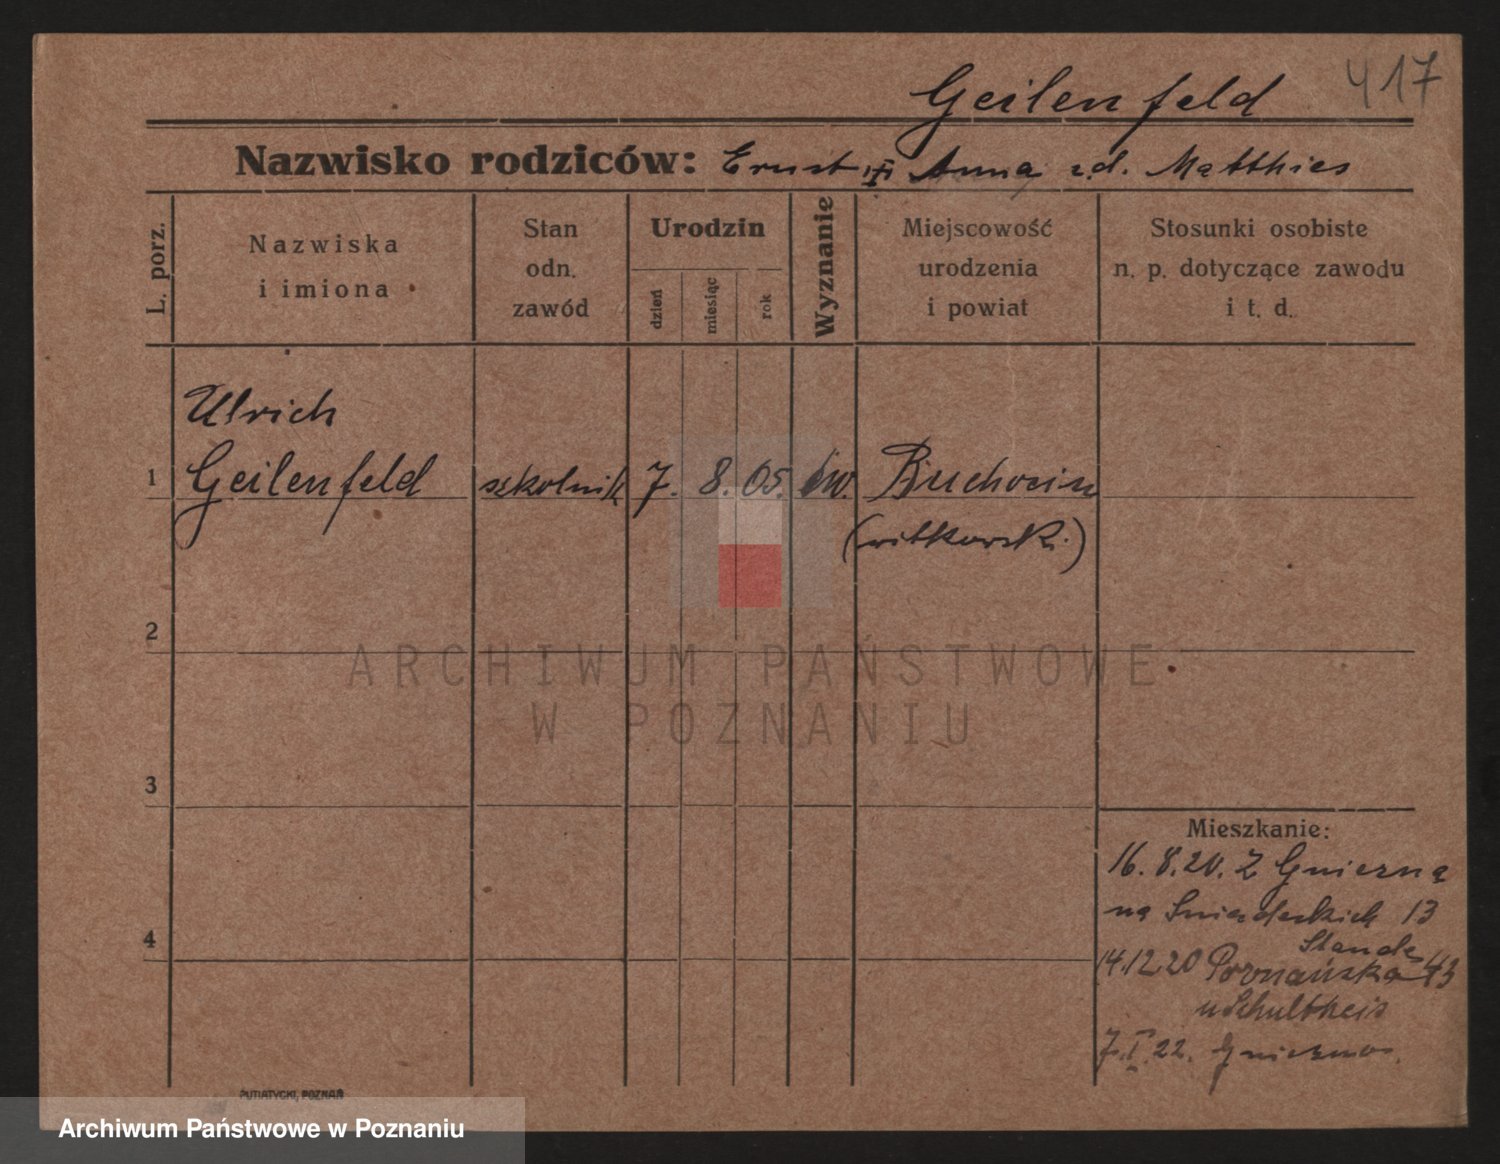 417
Geilenfeld
Nazwisko rodziców: Ernst Anna zd. Matthies
L. porz.
Nazwiska
i imiona
Stan
odn.
zawód
Urodzin
dzień
miesiąc
rok
Wyznanie
Miejscowość
urodzenia
i powiat
Stosunki osobiste
n. p. dotyczące zawodu
i t. d.
Ulrich
1 Geilenfeld szkolnik 7. 8. 05. ew.
(witkowski)
2
3
4
Mieszkanie:
16. 8. 20. Z Gniezna
na Sniadeckich 13
Stande
14.12 20 Poznańska 43
u Schultheis
7. I. 22. Gniezno.
PUTIATYCKI, POZNAŃ
ARCHIWUM PAŃSTWOWE
W POZNANIU
Archiwum Państwowe w Poznaniu